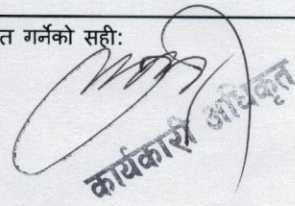 त गर्नेको सही:
कार्यकारी अधिकृत